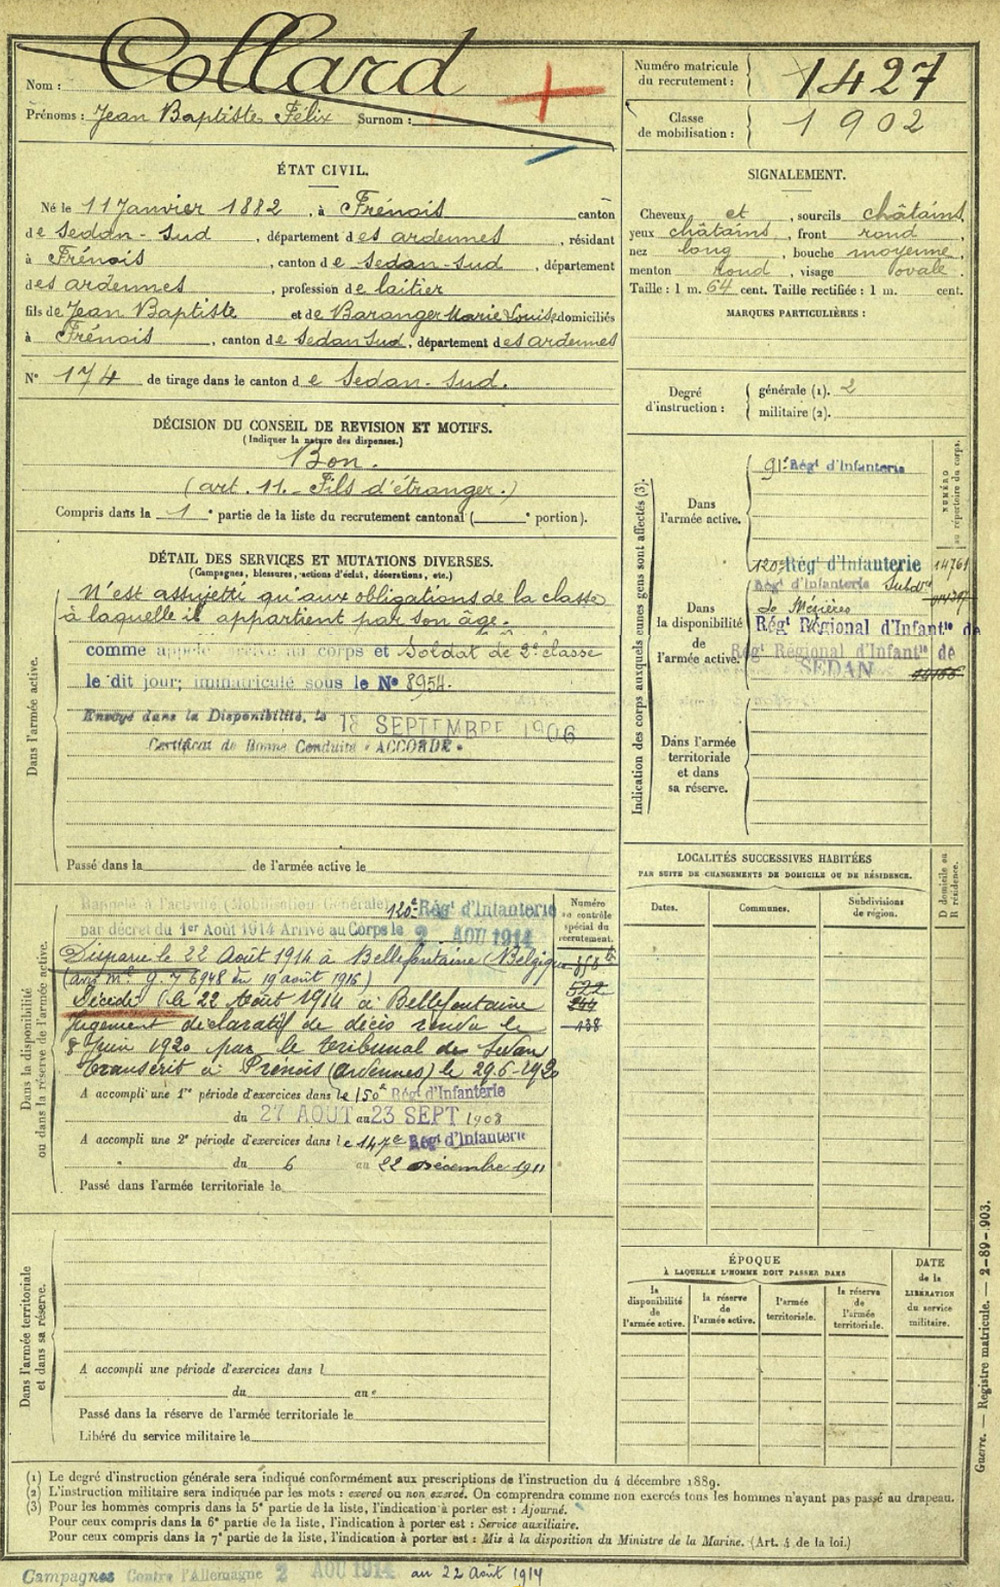 Nom : Collard
Prénoms : Jean Baptiste Félix Surnom :
Numéro matricule du recrutement : 1427
Classe de mobilisation : 1902
ÉTAT CIVIL.
Né le 11 Janvier 1882, à Frénois canton
de Sedan-Sud, département des ardennes, résidant
à Frénois, canton de Sedan-Sud, département
des ardennes, profession de laitier
fils de Jean Baptiste et de Baranger Marie Louise domiciliés
à Frénois, canton de Sedan Sud, département des ardennes
N° 174 de tirage dans le canton de Sedan-Sud.
SIGNALEMENT.
Cheveux et, sourcils châtains,
yeux châtains, front rond,
nez long, bouche moyenne,
menton rond, visage ovale.
Taille : 1 m. 64 cent. Taille rectifiée : 1 m. cent.
MARQUES PARTICULIÈRES :
Degré d'instruction :
générale (1). 2
militaire (2).
DÉCISION DU CONSEIL DE REVISION ET MOTIFS.
(Indiquer la nature des dispenses.)
Bon.
(art. 11. - Fils d'étranger.)
Compris dans la 1e partie de la liste du recrutement cantonal (e portion).
DÉTAIL DES SERVICES ET MUTATIONS DIVERSES.
(Campagnes, blessures, actions d'éclat, décorations, etc.)
Dans l'armée active.
N'est assujetti qu'aux obligations de la classe
à laquelle il appartient par son âge.
comme appelé au corps et Soldat de 2e classe
le dit jour; immatriculé sous le N° 8954.
Envoyé dans la Disponibilité, le 18 SEPTEMBRE 1906
Certificat de Bonne Conduite « ACCORDÉ »
Passé dans la de l'armée active le
Indication des corps auxquels les jeunes gens sont affectés (3).
NUMÉRO au répertoire du corps.
Dans l'armée active.
91e Régt d'Infanterie
Dans la disponibilité de l'armée active.
120e Régt d'Infanterie 14761
Régt d'Infanterie Subdon
de Mézières
Régt Régional d'Infantie de
Régt Régional d'Infantie de
SEDAN
Dans l'armée territoriale et dans sa réserve.
LOCALITÉS SUCCESSIVES HABITÉES
PAR SUITE DE CHANGEMENTS DE DOMICILE OU DE RÉSIDENCE.
Dates.
Communes.
Subdivisions de région.
D domicile ou R résidence.
Dans la disponibilité ou dans la réserve de l'armée active.
Numéro au contrôle spécial du recrutement.
Rappelé à l'activité (Mobilisation Générale) 120e Régt d'Infanterie
par décret du 1er Août 1914 Arrivé au Corps le 2 AOU 1914
Disparu le 22 Août 1914 à Bellefontaine (Belgique
(avis Mle 9.7 6948 du 19 août 1916)
Décédé le 22 Août 1914 à Bellefontaine
Jugement déclaratif de décès rendu le
8 Juin 1920 par le tribunal de Sedan
transcrit à Frénois (ardennes) le 29.6-1920
522
244
138
A accompli une 1re période d'exercices dans le 150e Régt d'Infanterie
du 27 AOUT au 23 SEPT 1908
A accompli une 2e période d'exercices dans le 147e Régt d'Infanterie
du 6 au 22 décembre 1911
Passé dans l'armée territoriale le
Dans l'armée territoriale et dans sa réserve.
A accompli une période d'exercices dans l
du au
Passé dans la réserve de l'armée territoriale le
Libéré du service militaire le
ÉPOQUE
À LAQUELLE L'HOMME DOIT PASSER DANS
la disponibilité de l'armée active.
la réserve de l'armée active.
l'armée territoriale.
la réserve de l'armée territoriale.
DATE de la LIBÉRATION du service militaire.
Guerre. — Registre matricule. — 2-89-903.
(1) Le degré d'instruction générale sera indiqué conformément aux prescriptions de l'instruction du 4 décembre 1889.
(2) L'instruction militaire sera indiquée par les mots : exercé ou non exercé. On comprendra comme non exercés tous les hommes n'ayant pas passé au drapeau.
(3) Pour les hommes compris dans la 5e partie de la liste, l'indication à porter est : Ajourné.
Pour ceux compris dans la 6e partie de la liste, l'indication à porter est : Service auxiliaire.
Pour ceux compris dans la 7e partie de la liste, l'indication à porter est : Mis à la disposition du Ministre de la Marine. (Art. 4 de la loi.)
Campagnes Contre l'Allemagne 2 AOU 1914 au 22 Août 1914